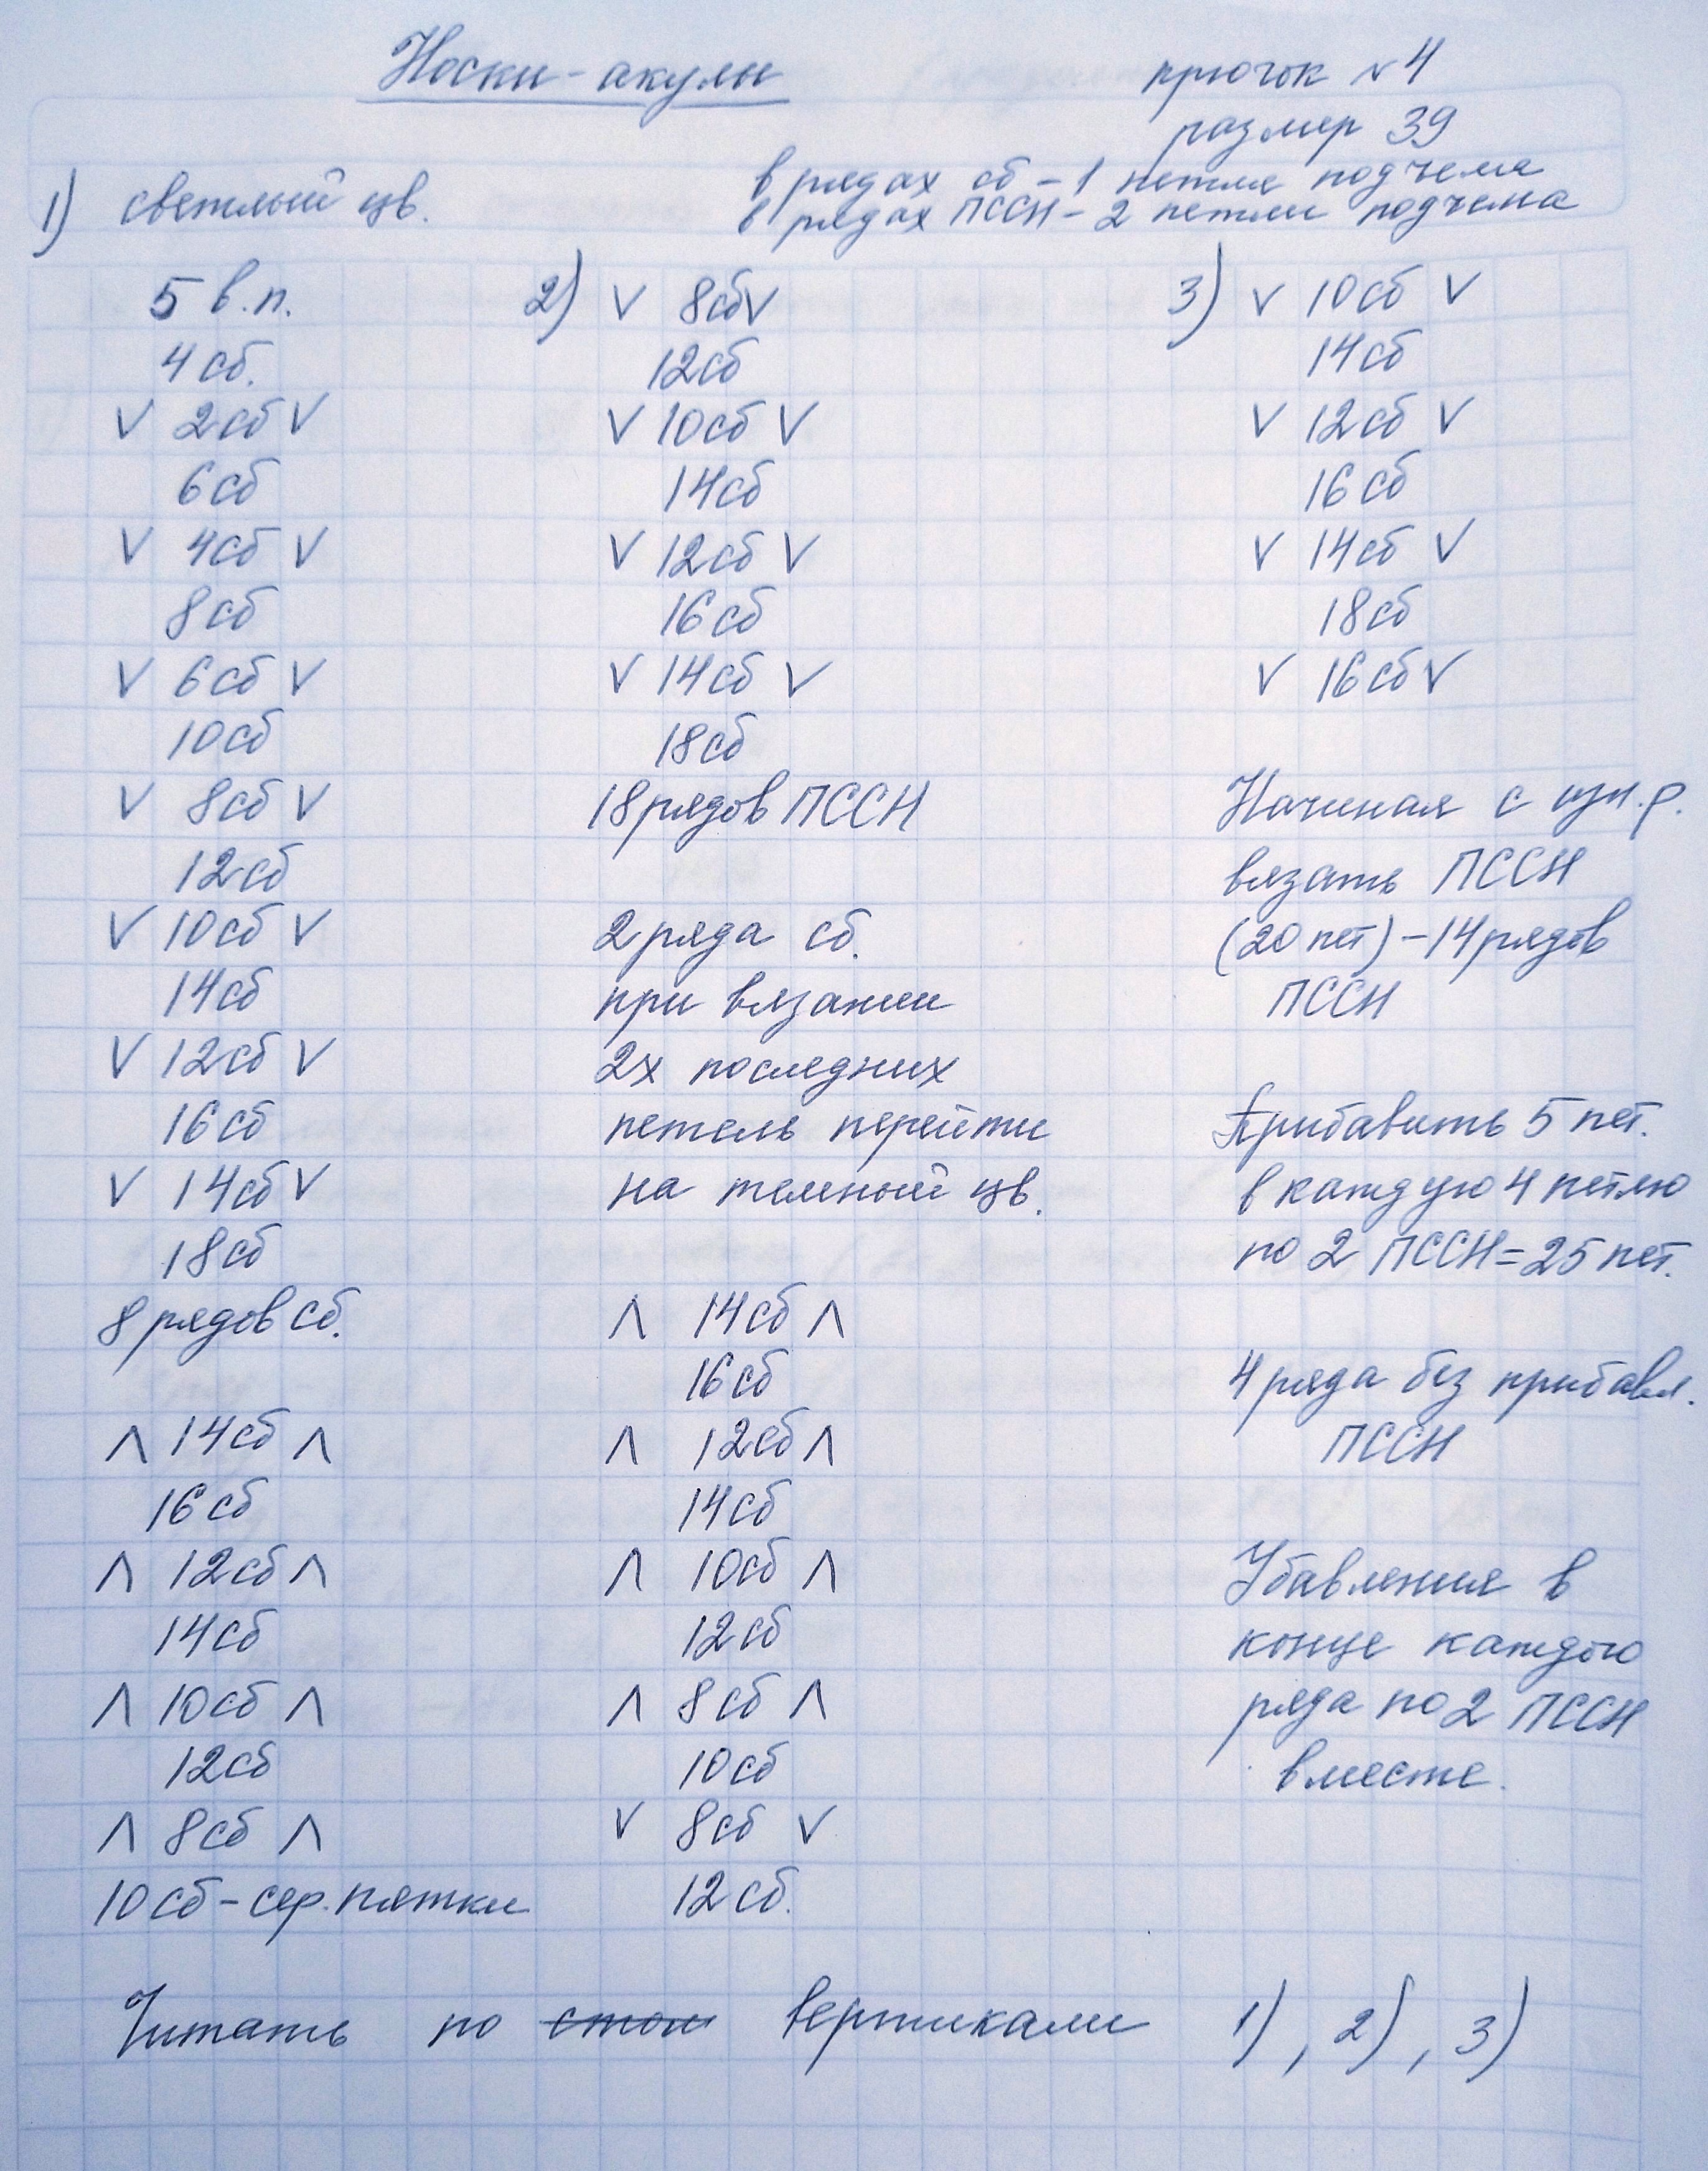 Носки-акулы
крючок №4
размер 39
в рядах сб - 1 петля подъема
в рядах ПССН - 2 петли подъема
1) светлый цв.
5 в.п.
4 сб.
V 2сб V
6сб
V 4сб V
8сб
V 6сб V
10сб
V 8сб V
12сб
V 10сб V
14сб
V 12сб V
16сб
V 14сб V
18сб
8 рядов сб.
Λ 14сб Λ
16сб
Λ 12сб Λ
14сб
Λ 10сб Λ
12сб
Λ 8сб Λ
10сб - сер. пятки
2) V 8сб V
12сб
V 10сб V
14сб
V 12сб V
16сб
V 14сб V
18сб
18 рядов ПССН
2 ряда сб.
при вязании
2х последних
петель перейти
на темный цв.
Λ 14сб Λ
16сб
Λ 12сб Λ
14сб
Λ 10сб Λ
12сб
Λ 8сб Λ
10сб
V 8сб V
12сб.
3) V 10сб V
14сб
V 12сб V
16сб
V 14сб V
18сб
V 16сб V
Начиная с изн.р.
вязать ПССН
(20 пет) - 14 рядов
ПССН
Прибавить 5 пет.
в каждую 4 петлю
по 2 ПССН = 25 пет.
4 ряда без прибавл.
ПССН
Убавления в
конце каждого
ряда по 2 ПССН
вместе.
Читать по стол вертикали 1), 2), 3)